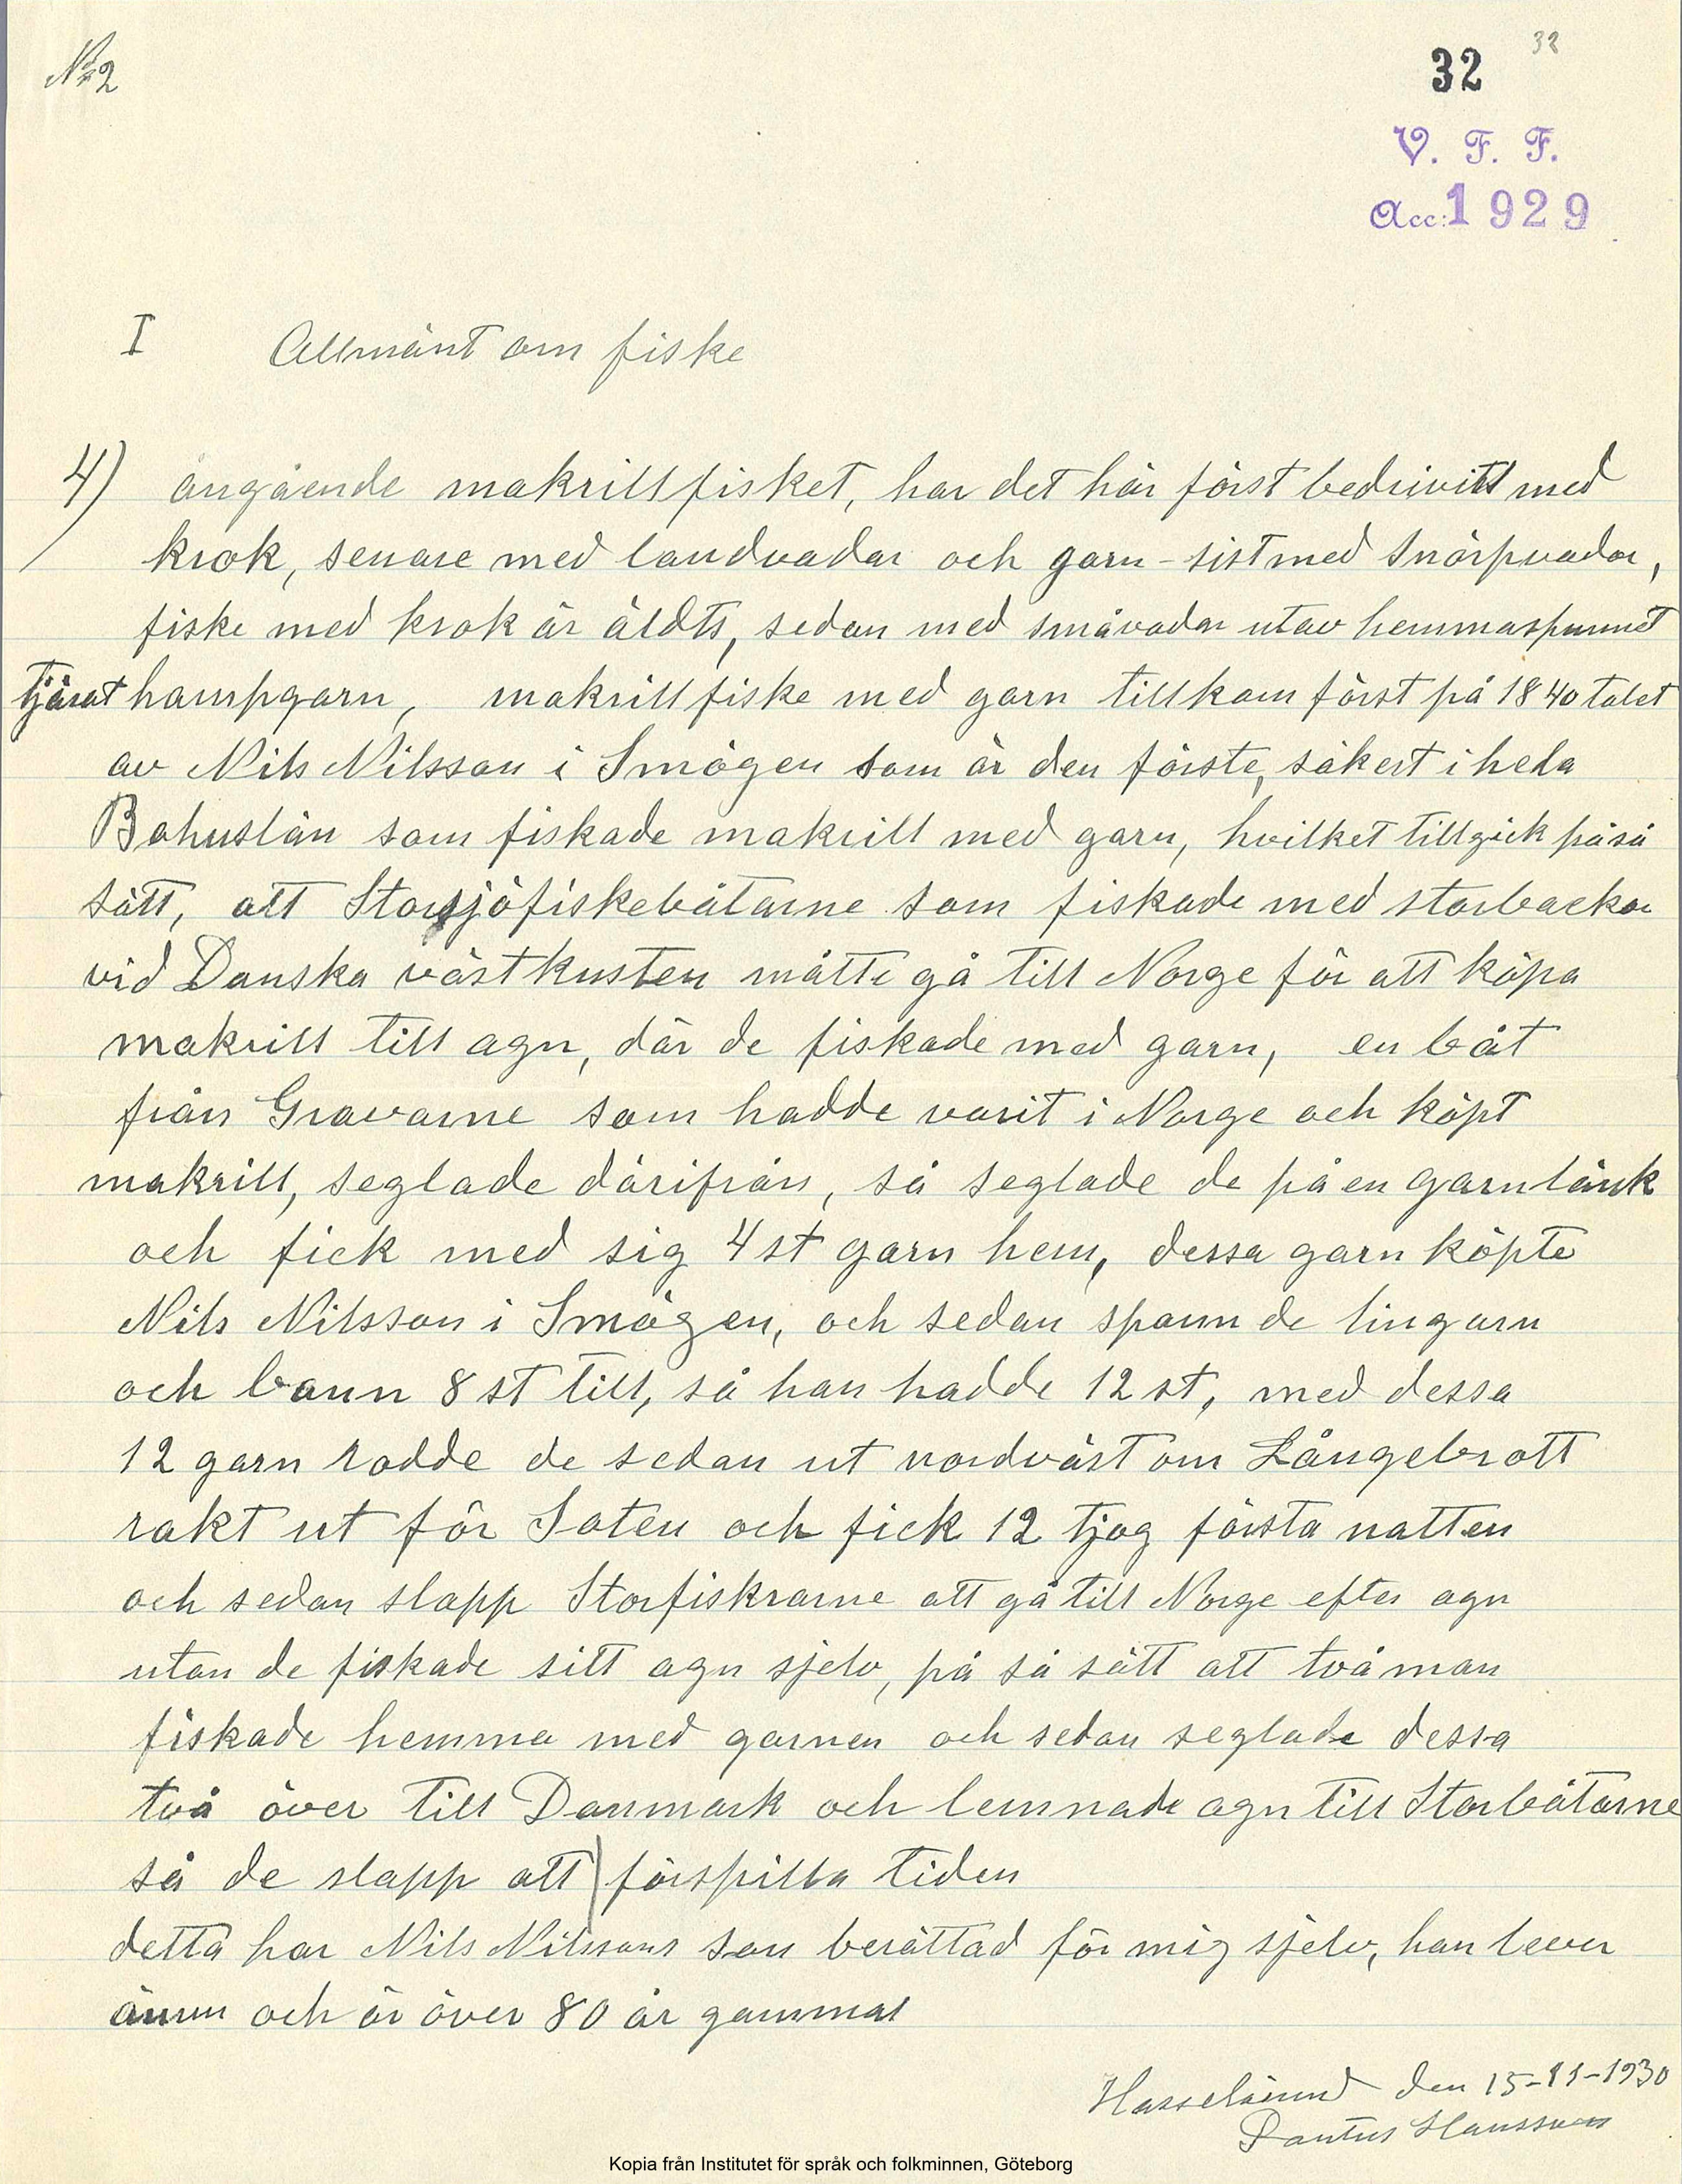 No 2
32 32
V. F. F.
Acc: 1929
I Allmänt om fiske
4) angående makrillfisket, har det här först bedrivits med
krok, senare med landvadar och garn - sist med snörpvadar,
fiske med krok är äldts, sedan med småvadar utav hemmaspunnet
tjärat hampgarn, makrillfiske med garn tillkom först på 1840 talet
av Nils Nilsson i Smögen som är den förste, säkert i hela
Bohuslän som fiskade makrill med garn, hvilket tillgick på så
sätt, att Storsjöfiskebåtarne som fiskade med storbackor
vid Danska västkusten måtte gå till Norge för att köpa
makrill till agn, där de fiskade med garn, en båt
från Gravarne som hadde varit i Norge och köpt
makrill, seglade därifrån, så seglade de på en garnlänk
och fick med sig 4 st garn hem, dessa garn köpte
Nils Nilsson i Smögen, och sedan spann de lingarn
och bann 8 st till, så han hadde 12 st, med dessa
12 garn rodde de sedan ut nordväst om Långebrott
rakt ut för Soten och fick 12 tjog första natten
och sedan slapp Storfiskrarne att gå till Norge efter agn
utan de fiskade sitt agn sjelv, på så sätt att två man
fiskade hemma med garnen och sedan seglade dessa
två över till Danmark och lemnade agn till Storbåtarne
så de slapp att förspilla tiden
detta har Nils Nilssons son berättad för mig sjelv, han lever
ännu och är över 80 år gammal
Hasselösund den 15-11-1930
Pontus Hansson
Kopia från Institutet för språk och folkminnen, Göteborg